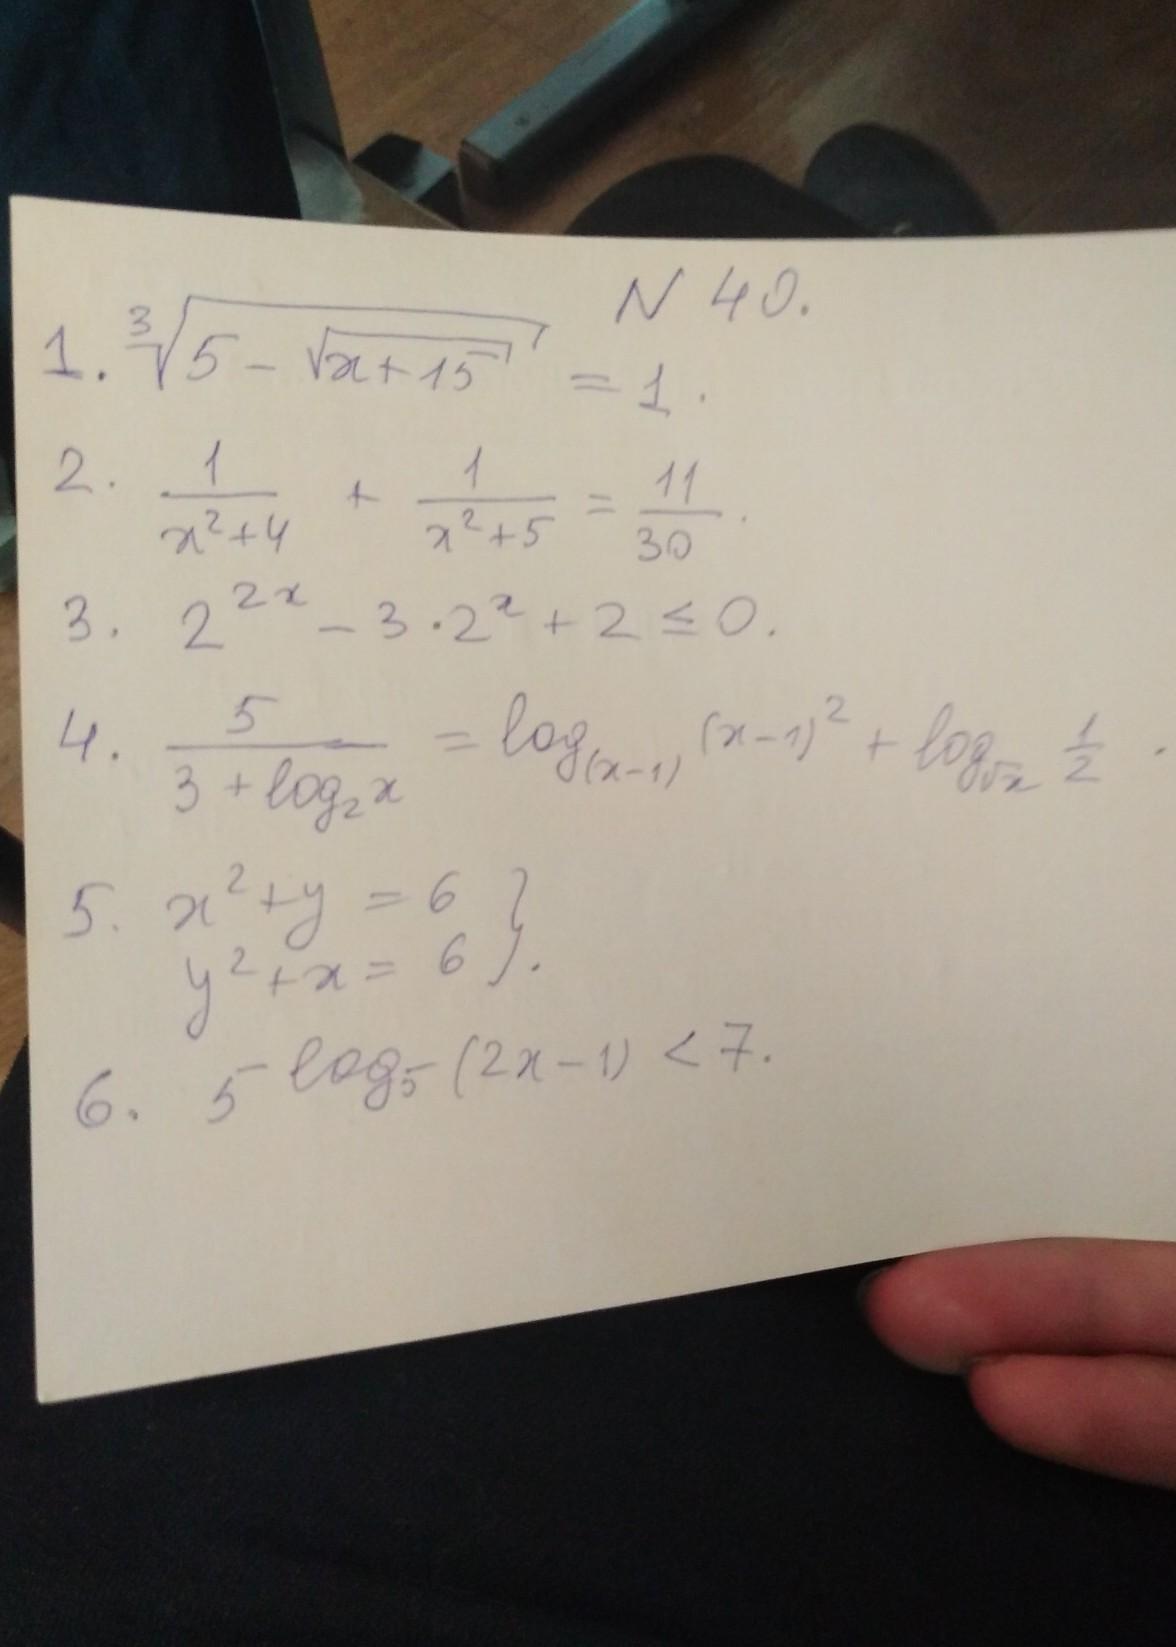 N 40.
1. ∛(5 - √(x+15)) = 1.
2. 1/(x²+4) + 1/(x²+5) = 11/30.
3. 2^(2x) - 3·2^x + 2 ≤ 0.
4. 5/(3 + log₂x) = log_(x-1) (x-1)² + log_√x 1/2.
5. x² + y = 6 }
y² + x = 6 }.
6. 5^(- log₅ (2x-1)) < 7.